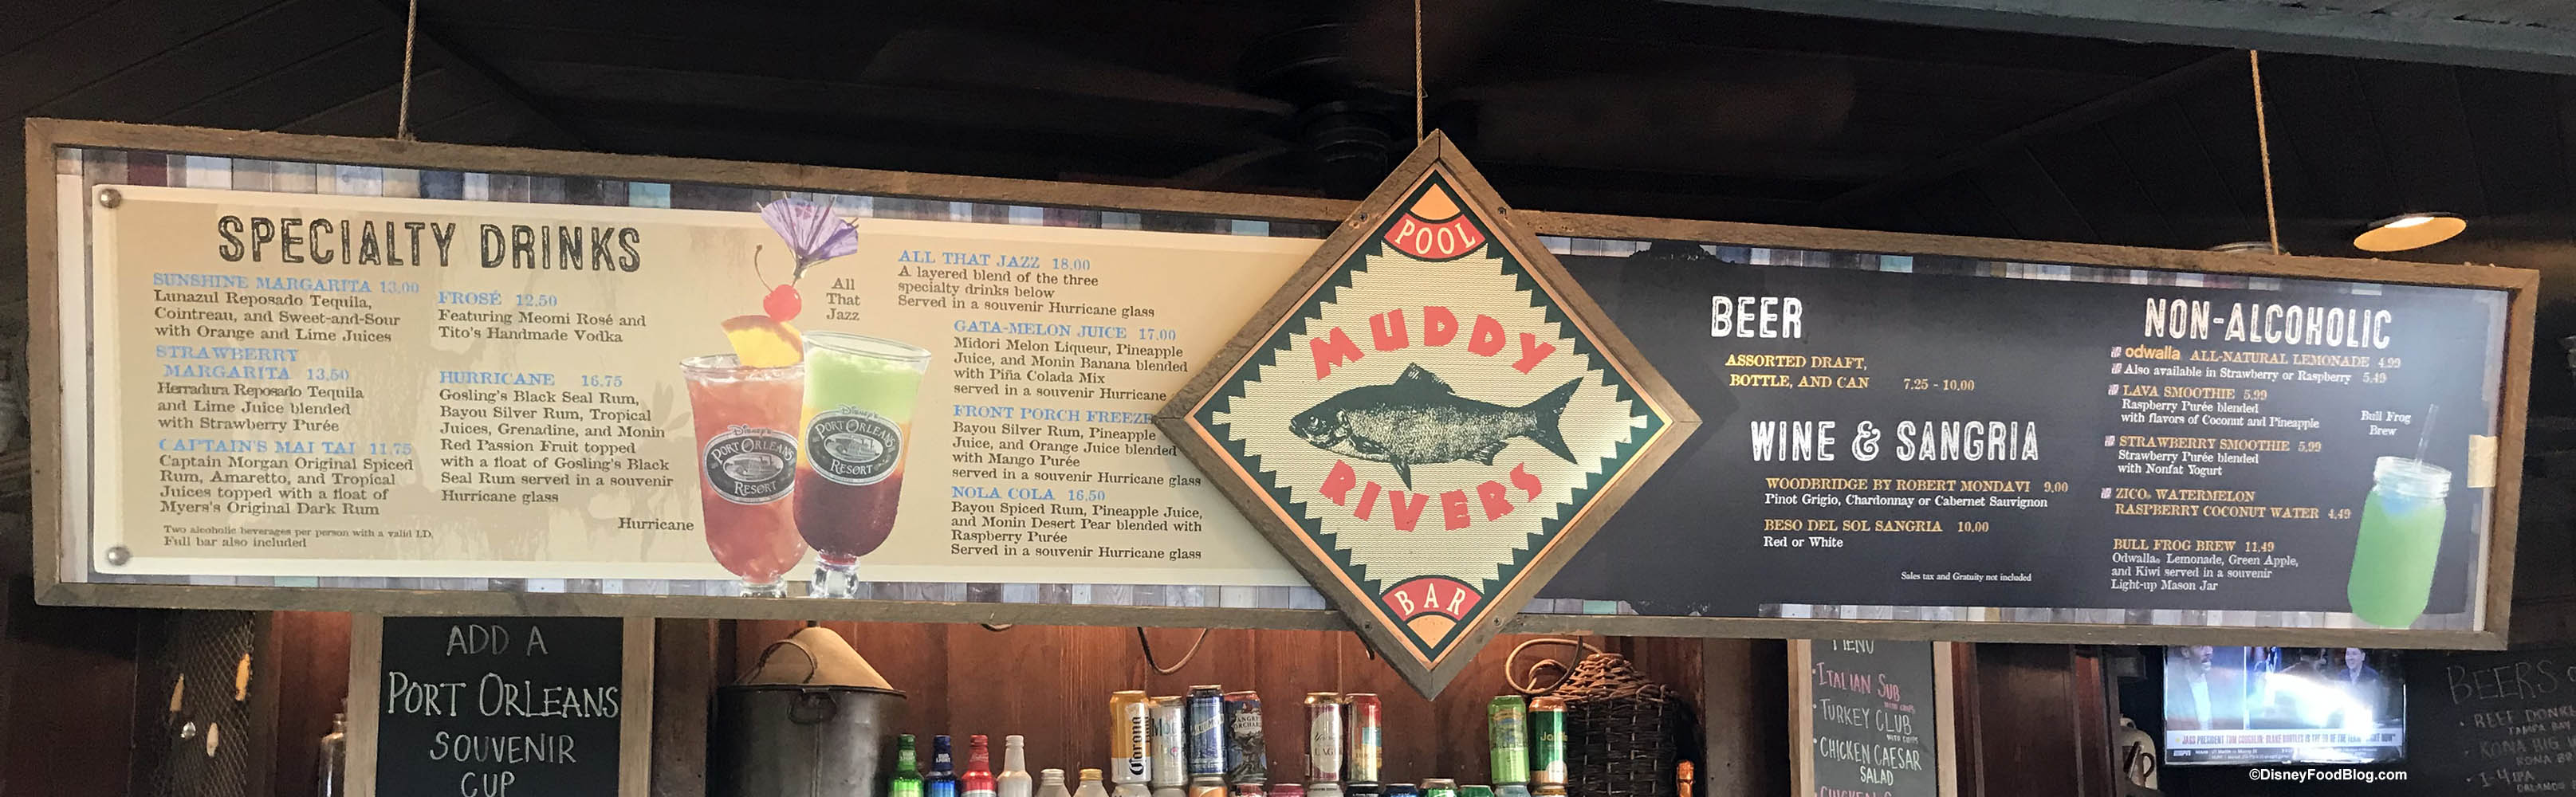 SPECIALTY DRINKS
SUNSHINE MARGARITA 13.00
Lunazul Reposado Tequila,
Cointreau, and Sweet-and-Sour
with Orange and Lime Juices
STRAWBERRY
MARGARITA 13.50
Herradura Reposado Tequila
and Lime Juice blended
with Strawberry Purée
CAPTAIN'S MAI TAI 11.75
Captain Morgan Original Spiced
Rum, Amaretto, and Tropical
Juices topped with a float of
Myers's Original Dark Rum
Two alcoholic beverages per person with a valid I.D.
Full bar also included
FROSÉ 12.50
Featuring Meomi Rosé and
Tito's Handmade Vodka
HURRICANE 16.75
Gosling's Black Seal Rum,
Bayou Silver Rum, Tropical
Juices, Grenadine, and Monin
Red Passion Fruit topped
with a float of Gosling's Black
Seal Rum served in a souvenir
Hurricane glass
Hurricane
Disney's
PORT ORLEANS
RESORT
Disney's
PORT ORLEANS
RESORT
All
That
Jazz
ALL THAT JAZZ 18.00
A layered blend of the three
specialty drinks below
Served in a souvenir Hurricane glass
GATA-MELON JUICE 17.00
Midori Melon Liqueur, Pineapple
Juice, and Monin Banana blended
with Piña Colada Mix
served in a souvenir Hurricane
FRONT PORCH FREEZE
Bayou Silver Rum, Pineapple
Juice, and Orange Juice blended
with Mango Purée
served in a souvenir Hurricane glass
NOLA COLA 16.50
Bayou Spiced Rum, Pineapple Juice,
and Monin Desert Pear blended with
Raspberry Purée
Served in a souvenir Hurricane glass
POOL
MUDDY
RIVERS
BAR
BEER
ASSORTED DRAFT,
BOTTLE, AND CAN 7.25 - 10.00
WINE & SANGRIA
WOODBRIDGE BY ROBERT MONDAVI 9.00
Pinot Grigio, Chardonnay or Cabernet Sauvignon
BESO DEL SOL SANGRIA 10.00
Red or White
Sales tax and Gratuity not included
NON-ALCOHOLIC
odwalla ALL-NATURAL LEMONADE 4.99
Also available in Strawberry or Raspberry 5.49
LAVA SMOOTHIE 5.99
Raspberry Purée blended
with flavors of Coconut and Pineapple
STRAWBERRY SMOOTHIE 5.99
Strawberry Purée blended
with Nonfat Yogurt
ZICO® WATERMELON
RASPBERRY COCONUT WATER 4.49
BULL FROG BREW 11.49
Odwalla® Lemonade, Green Apple,
and Kiwi served in a souvenir
Light-up Mason Jar
Bull Frog
Brew
ADD A
PORT ORLEANS
SOUVENIR
CUP
Corona
MENU
• ITALIAN SUB
• TURKEY CLUB
WITH CHIPS
• CHICKEN CAESAR
SALAD
BEERS
• REEF DONKEY
TAMPA BAY
• KONA BIG
KONA
• I-4 IPA
©DisneyFoodBlog.com